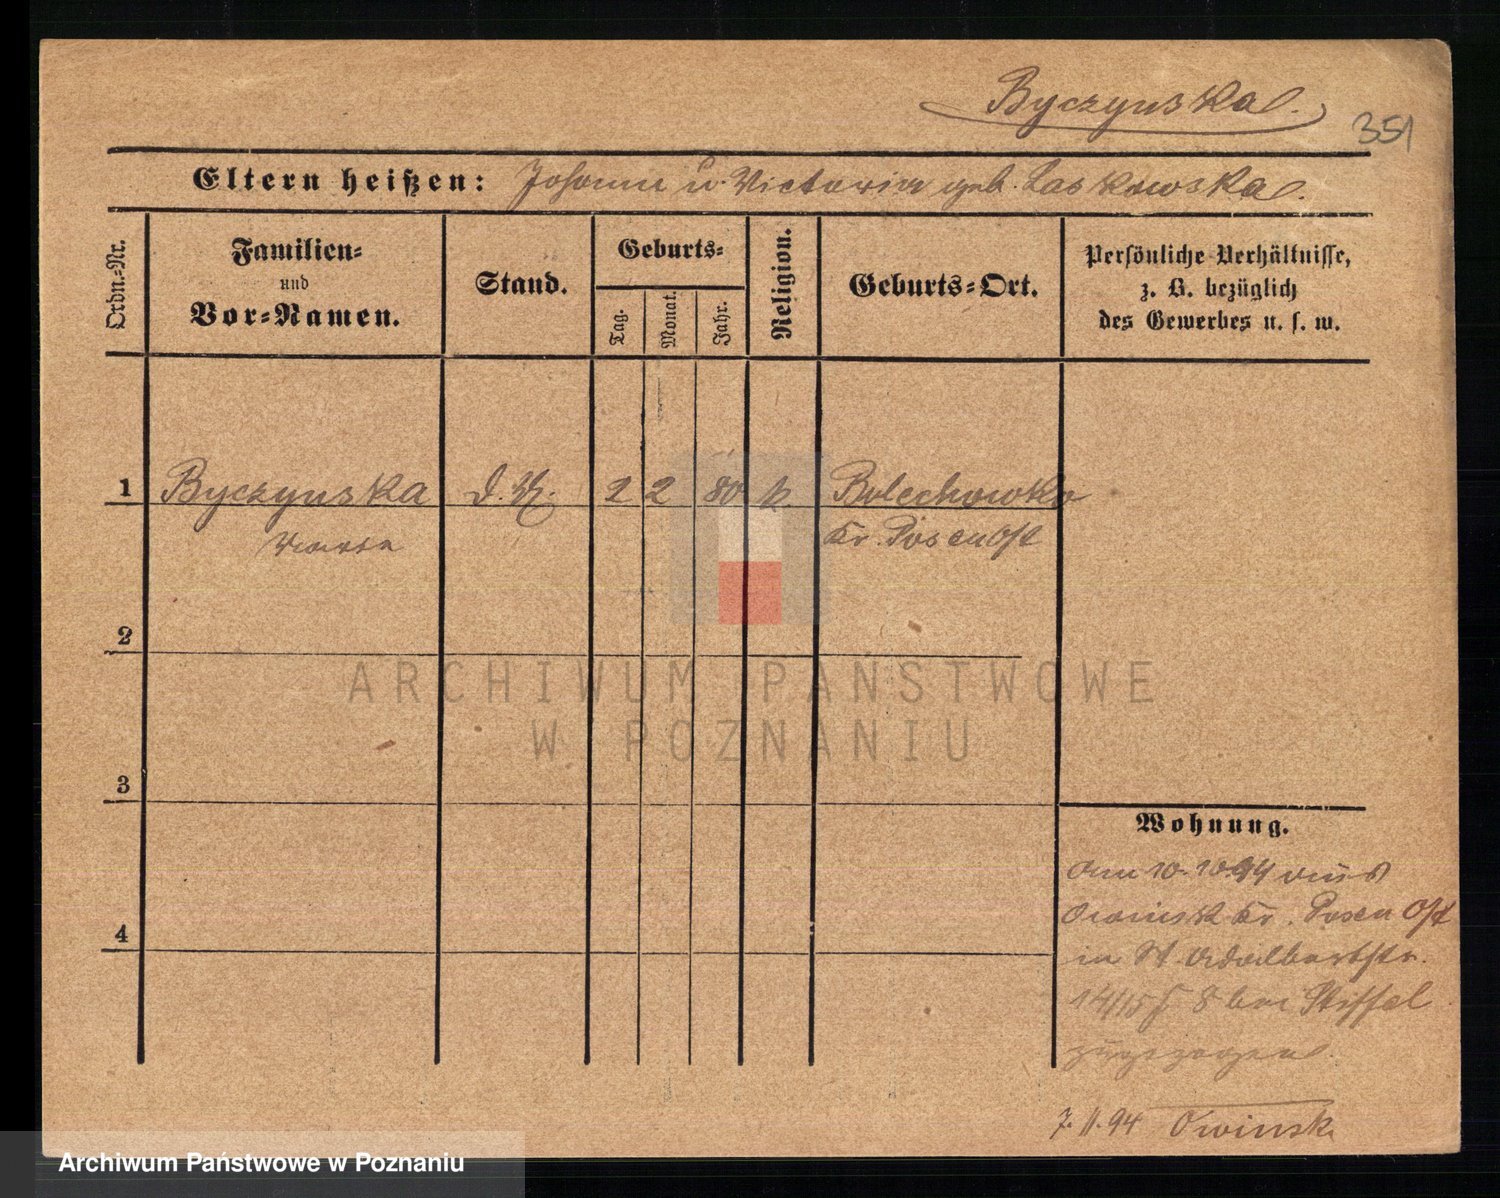 Byczynska.
351
Eltern heißen: Johann u. Victoria geb. Laskowska.
Ordn.-Nr.
Familien-
und
Vor-Namen.
Stand.
Geburts-
Tag.
Monat.
Jahr.
Religion.
Geburts-Ort.
Persönliche Verhältnisse,
z. B. bezüglich
des Gewerbes u. s. w.
1 Byczynska 2 2 80 k Bolechowko
Kr. Posen Ost
2
3
4
Wohnung.
Am 10.10.94 aus
Owinsk Kr. Posen Ost
in St. Adalbertstr.
14/15 8 bei Stiffel
zugezogen.
7.11.94 Owinsk
ARCHIWUM PAŃSTWOWE
W POZNANIU
Archiwum Państwowe w Poznaniu